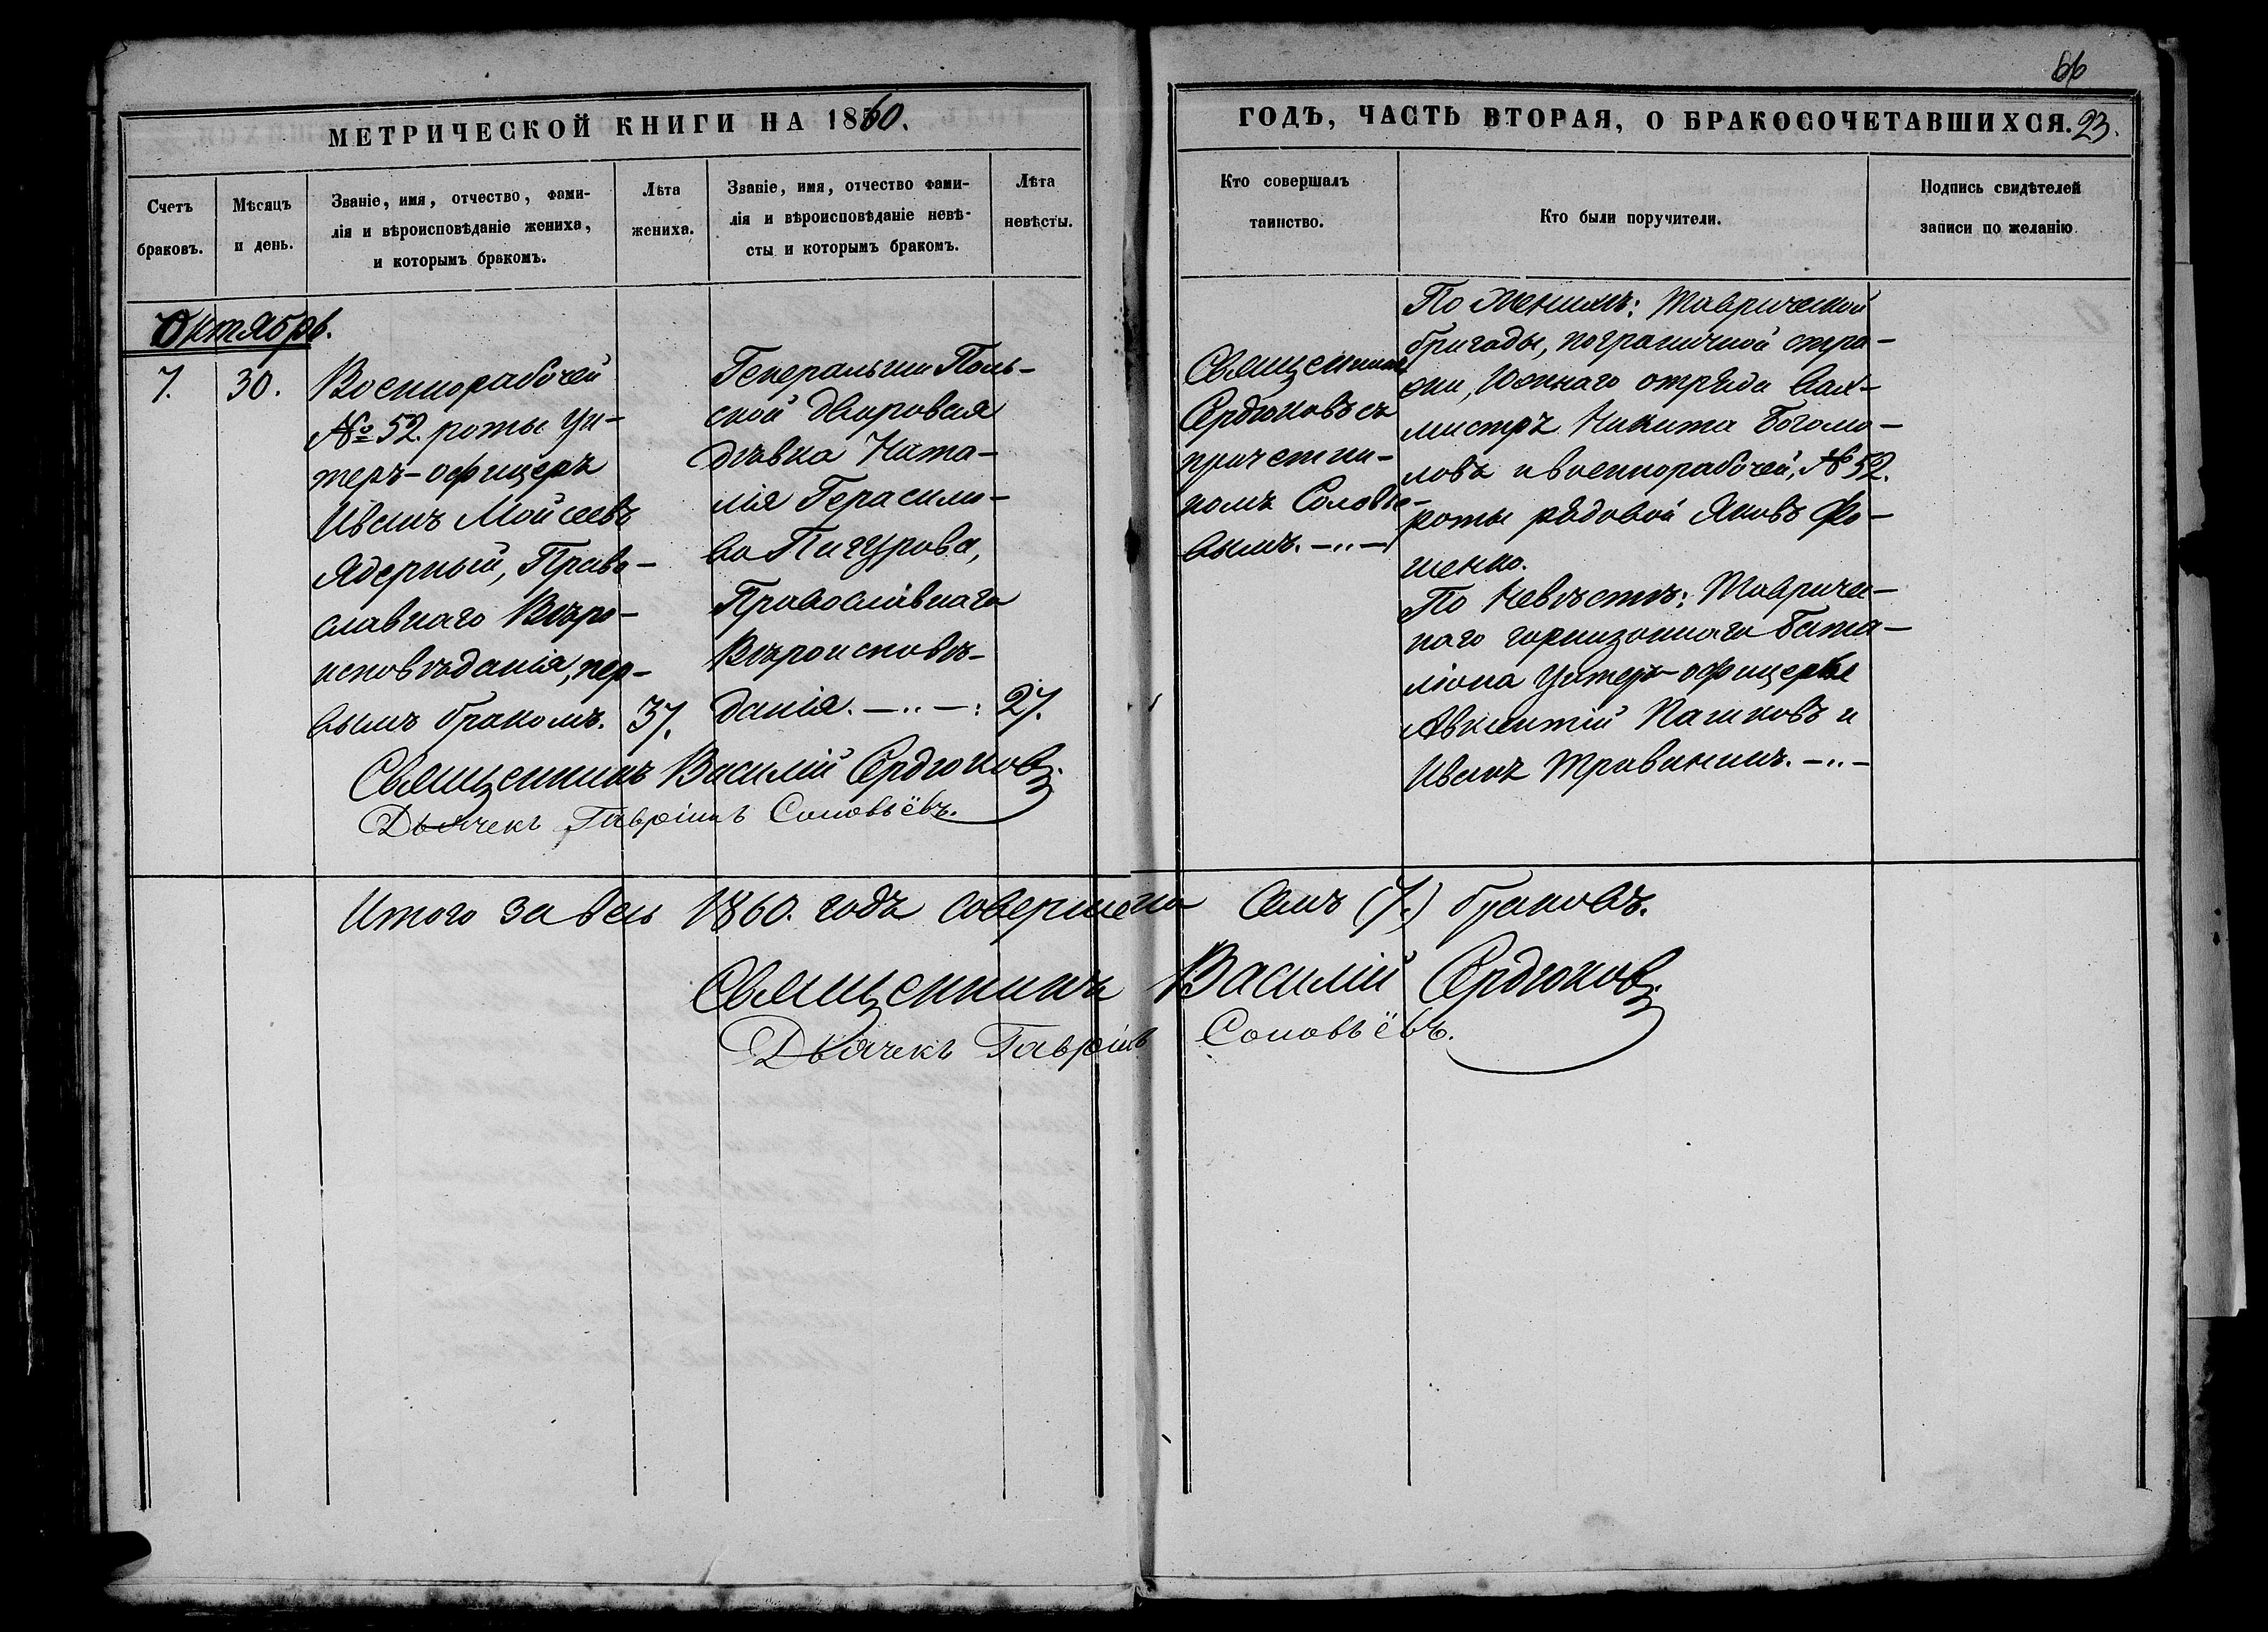 66
МЕТРИЧЕСКОЙ КНИГИ НА 1860.
ГОДЪ, ЧАСТЬ ВТОРАЯ, О БРАКОСОЧЕТАВШИХСЯ. 23.
Счетъ
браковъ.
Мѣсяцъ
и день.
Званіе, имя, отчество, фами-
лія и вѣроисповѣданіе жениха,
и которымъ бракомъ.
Лѣта
жениха.
Званіе, имя, отчество фами-
лія и вѣроисповѣданіе невѣ-
сты и которымъ бракомъ.
Лѣта
невѣсты.
Кто совершалъ
таинство.
Кто были поручители.
Подпись свидѣтелей
записи по желанію
Октябрь.
7.
30.
Военнорабочей
№ 52. роты Ун-
теръ-офицеръ
Иванъ Мойсеевъ
Ядерный, Право-
славнаго Вѣро-
исповѣданія, пер-
вымъ бракомъ.
37.
Генеральши Поль-
ской дворовая
дѣвка Ната-
лія Герасимо-
ва Пигурова,
Православнаго
Вѣроисповѣ-
данія. —..— :
27.
Священникъ
Сердюковъ съ
причетни-
комъ Соловье-
вымъ. —..—
По Женихѣ: Таврической
бригады, пограничной стра-
жи, Южнаго отряда Вах-
мистръ Никита Богомо-
ловъ и военнорабочей, № 52.
роты рядовой Яковъ Фо-
менко.
По Невѣстѣ: Тавриче-
каго горнизоннаго Бата-
ліона Унтеръ-офицеры
Авксентій Пашковъ и
Иванъ Травинъ. —..—
Священникъ Василій Сердюковъ.
Дьячекъ Гавріилъ Соловьёвъ.
Итого за весь 1860. годъ совершено семь (7.) браковъ.
Священникъ Василій Сердюковъ.
Дьячекъ Гавріилъ Соловьёвъ.